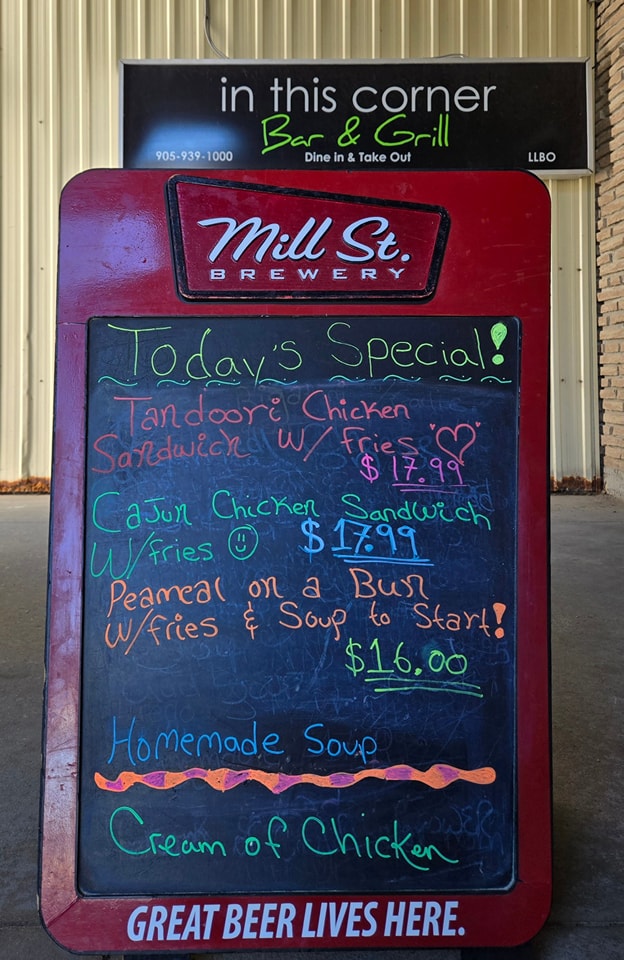 in this corner
Bar & Grill
905-939-1000 Dine in & Take Out LLBO
Mill St.
BREWERY
Today's Special!
Tandoori Chicken
Sandwich W/ Fries
$17.99
Cajun Chicken Sandwich
W/fries $17.99
Peameal on a Bun
W/fries & Soup to Start!
$16.00
Homemade Soup
Cream of Chicken
GREAT BEER LIVES HERE.